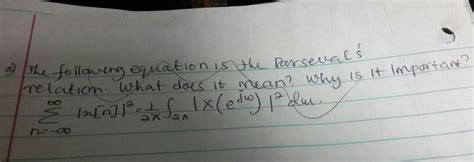 Q) The following equation is the Parseval's
relation. What does it mean? Why is it Important?
∞
∑ |x[n]|² = 1/2π ∫2π |X(e^jω)|² dω.
n=-∞